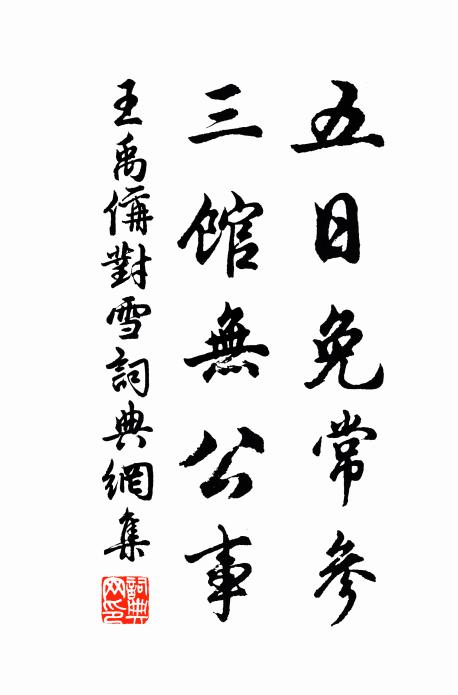 五日免常參
三館無公事
王禹偁對雪詞典網集
詞典網印